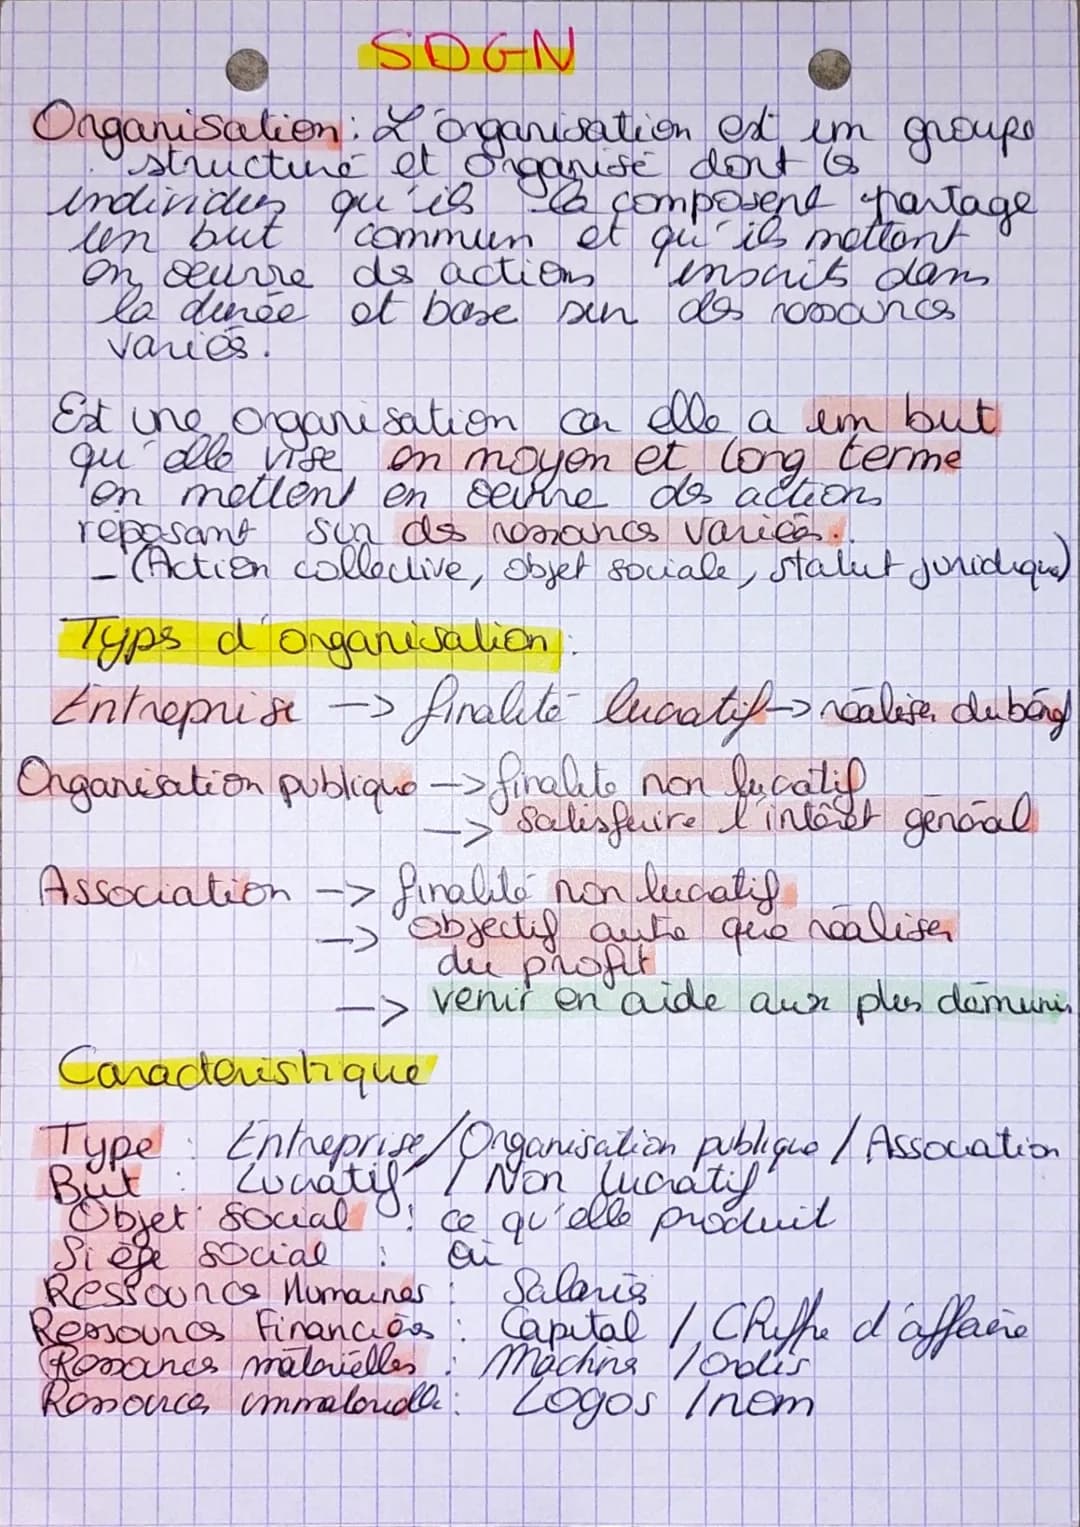 SDGN
Organisation : L'organisation est un groupe
structuré et organisé dont les
individus qu'ils la composent partage
un but commun et qu'ils mettent
en œuvre des actions inscrits dans
la durée et base sur des ressources
variés.
Est une organisation car elle a un but
qu'elle vise en moyen et long terme
en mettent en œuvre des actions
reposant sur des ressources variées.
- (Action collective, objet sociale, statut juridique)
Types d'organisation :
Entreprise -> finalité lucratif -> réaliser du bénef
Organisation publique -> finalité non lucatif
-> satisfaire l'intérêt général
Association -> finalité non lucratif
-> objectif autre que réaliser
du profit
-> venir en aide aux plus démunis
Caracteristique
Type : Entreprise / Organisation publique / Association
But : Lucratif / Non lucratif
Objet social : ce qu'elle produit
Siège social : où
Ressources Humaines : Salariés
Ressources Financières : Capital / Chiffre d'affaire
Ressources matérielles : Machine / Ordis
Ressources immatérielle : Logos / nom